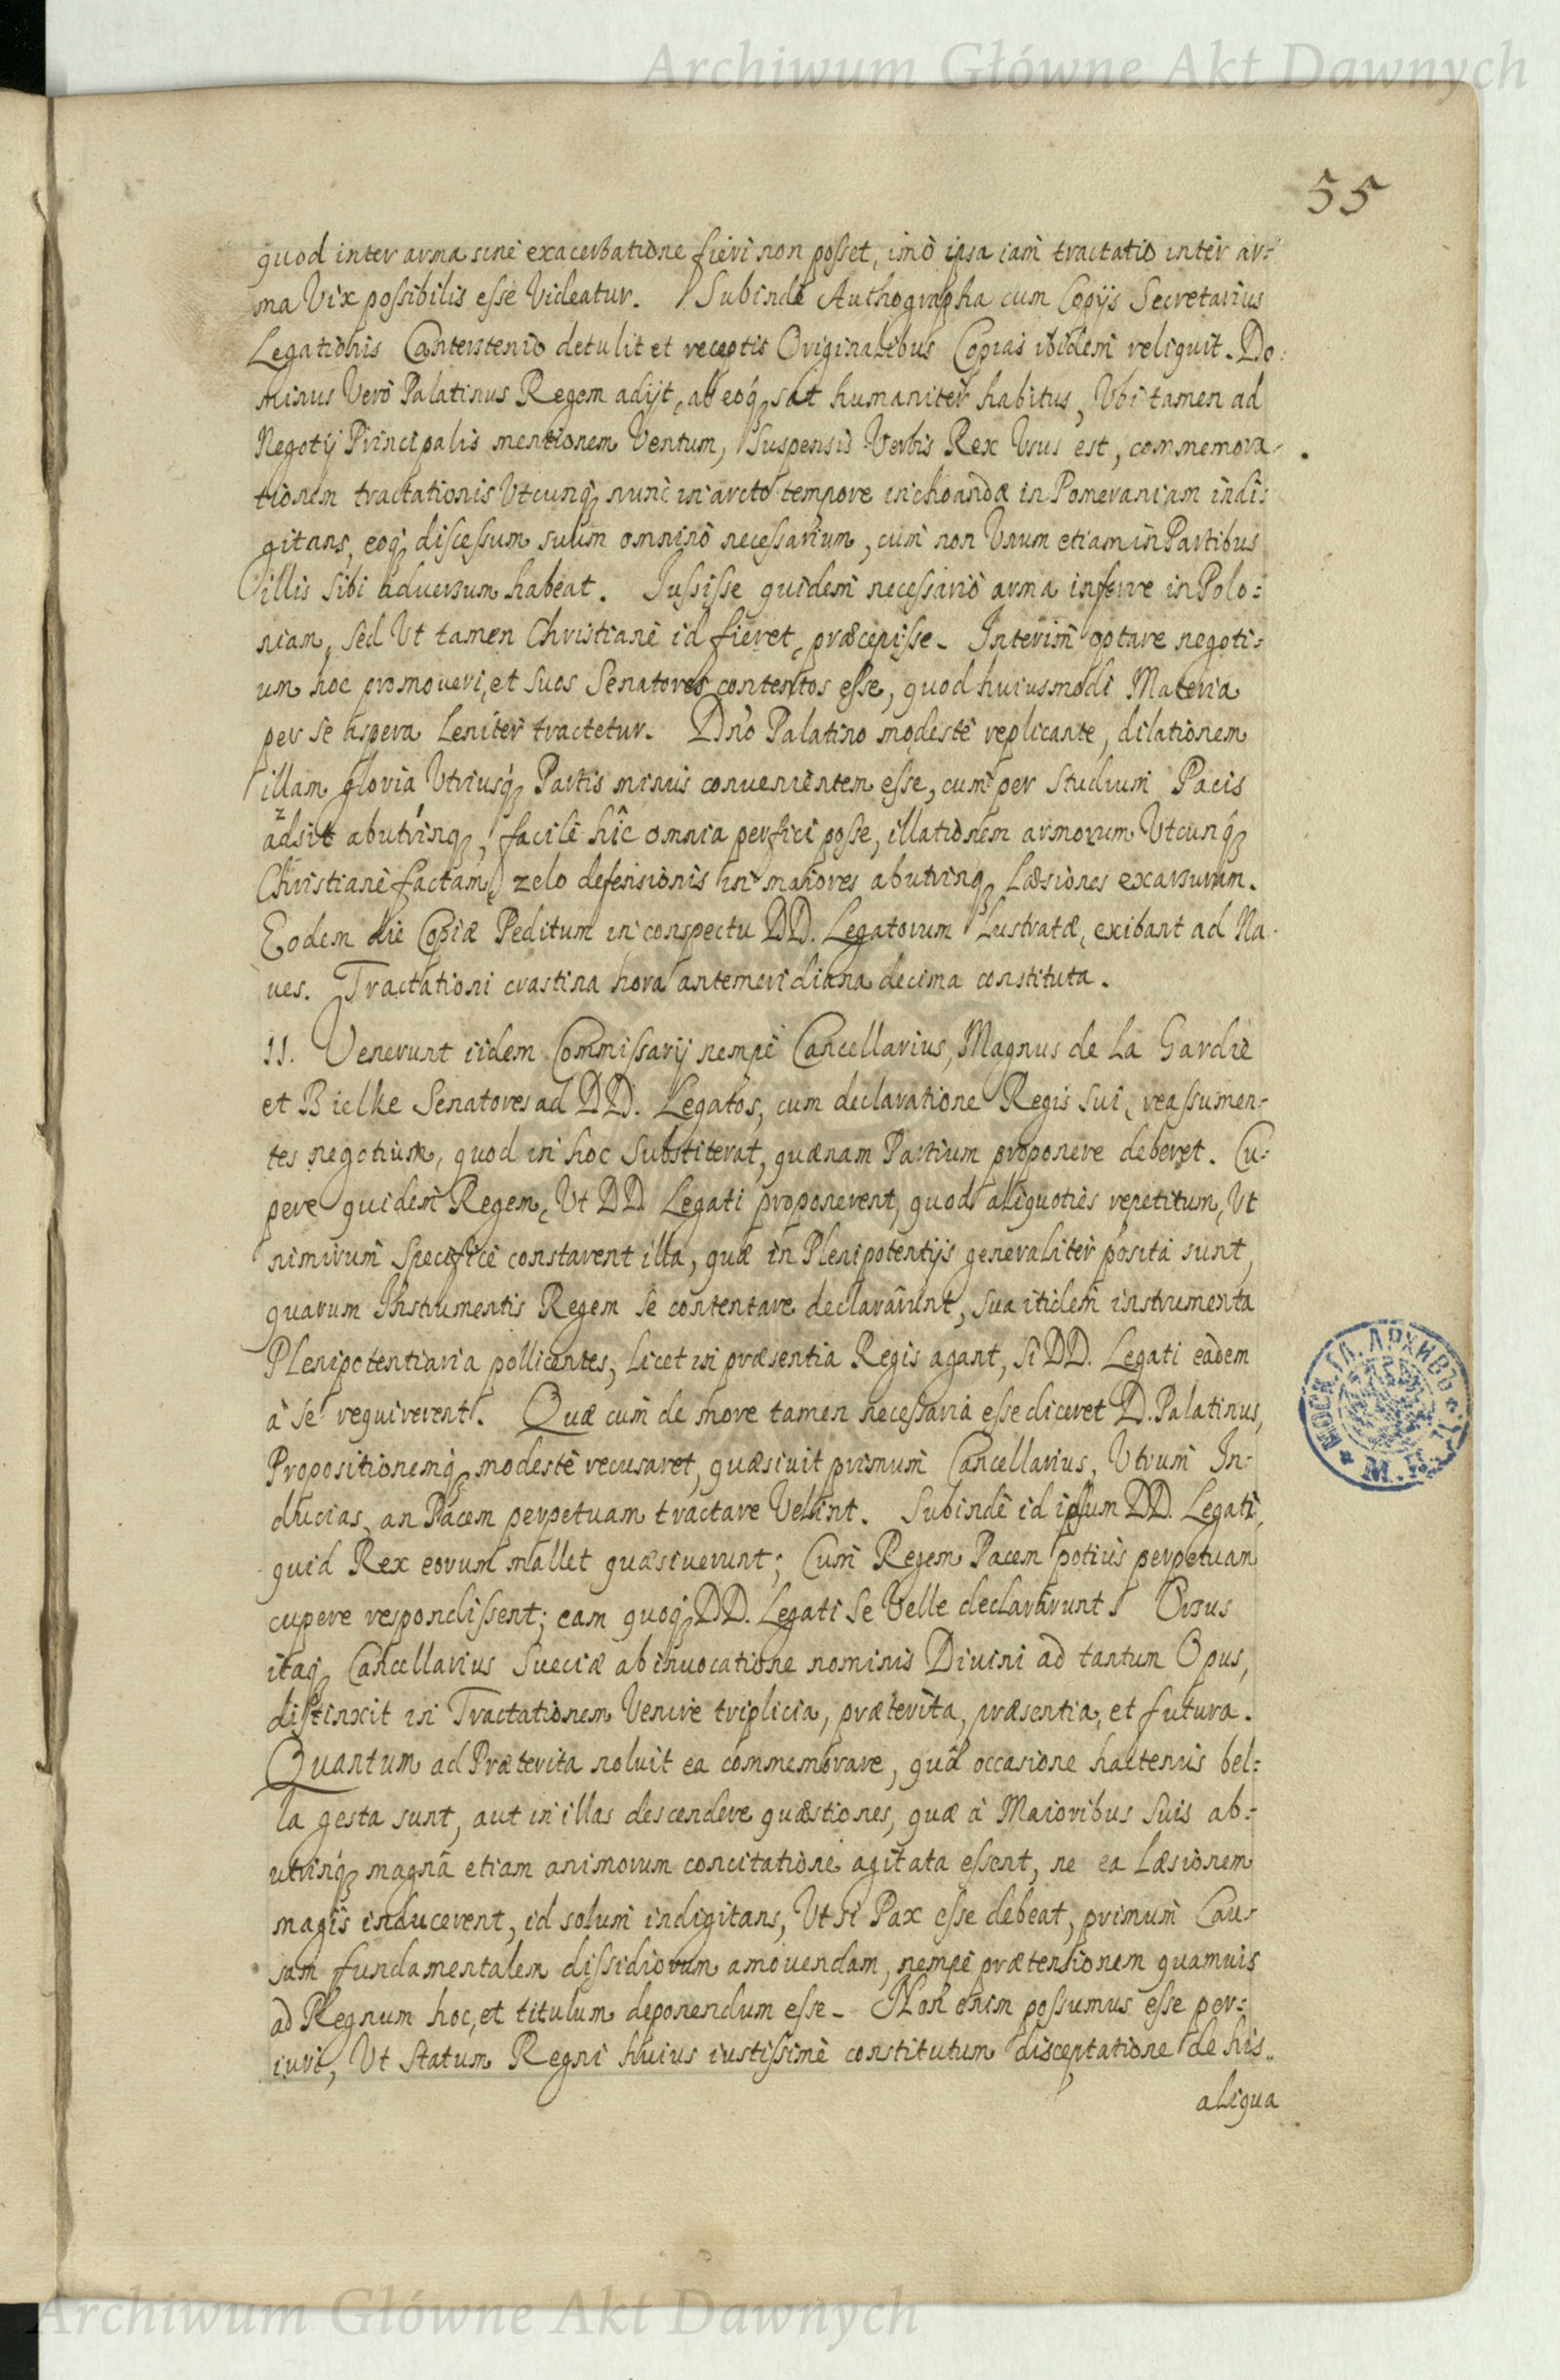 Archiwum Główne Akt Dawnych
55
quod inter arma sine exacerbatione fieri non posset, imò ipsa iam tractatio inter ar-
ma Vix possibilis esse Videatur. Subindè Authographa cum Copijs Secretarius
Legationis Cantersteniο detulit et receptis Originalibus Copias ibidem reliquit. Do:
minus Verò Palatinus Regem adijt, ab eoq; sat humaniter habitus, Vbi tamen ad
Negotij Principalis mentionem Ventum, Suspensis Verbis Rex Vsus est, commemora-
tionem tractationis Vtcunq; nunc in arcto tempore inchoandæ in Pomeraniam indi:
gitans, eoq; discessum suum omninò necessarium, cum non Vnum etiam in Partibus
illis sibi aduersum habeat. Jussisse quidem necessariò arma inferre in Polo:
niam, sed Vt tamen Christianè id fieret, præcepisse. Interim optare negoti:
um hoc promoueri, et suos Senatores contentos esse, quod huiusmodi Materia
per se aspera Leniter tractetur. Dno Palatino modestè replicante, dilationem
illam gloria Vtriusq; Partis minus conuenientem esse, cum per studium Pacis
adsit abutrinq;, facilè hîc omnia perfici posse, illationem armorum Vtcunq;
Christianè factam, zelo defensionis in maiores abutrinq; Læsiones exarsuram.
Eodem die Copiæ Peditum in conspectu DD. Legatorum Lustratæ, exibant ad Na-
ues. Tractationi crastina hora antemeridiana decima constituta.
11. Venerunt iidem Commissarij nempè Cancellarius, Magnus de La Gardie
et Bielke Senatores ad DD. Legatos, cum declaratione Regis sui, reassumen-
tes negotium, quod in hoc substiterat, quænam Partium proponere deberet. Cu:
pere quidem Regem, Vt DD. Legati proponerent, quod aliquoties repetitum, Vt
nimirum specificè constarent illa, quæ in Plenipotentijs generaliter posita sunt,
quarum Instrumentis Regem se contentare declarârunt, sua itidem instrumenta
Plenipotentiaria pollicentes, licet in præsentia Regis agant, si DD. Legati eadem
à se requirerent. Quæ cum de more tamen necessaria esse diceret D. Palatinus,
Propositionemq; modestè recusaret, quæsiuit primum Cancellarius, Vtrum In-
ducias, an Pacem perpetuam tractare Velint. Subindè id ipsum DD. Legati,
quid Rex eorum mallet quæsiuerunt; Cum Regem Pacem potius perpetuam
cupere respondissent; eam quoq; DD. Legati se Velle declarârunt. Orsus
itaq; Cancellarius Sueciæ ab inuocatione nominis Diuini ad tantum Opus,
distinxit in Tractationem Venire triplicia, præterita, præsentia, et futura.
Quantum ad Præterita noluit ea commemorare, quâ occasione hactenus bel:
la gesta sunt, aut in illas descendere quæstiones, quæ à Maioribus suis ab:
utrinq; magnâ etiam animorum concitatione agitata essent, ne ea Læsionem
magis inducerent, id solum indigitans, Vt si Pax esse debeat, primum Cau-
sam fundamentalem dissidiorum amouendam, nempè prætensionem quamuis
ad Regnum hoc, et titulum deponendum esse. Non enim possumus esse per:
iuri, Vt statum Regni huius iustissimè constitutum disceptatione de his
aliqua
МОСК. ГЛ. АРХИВЪ
Archiwum Główne Akt Dawnych